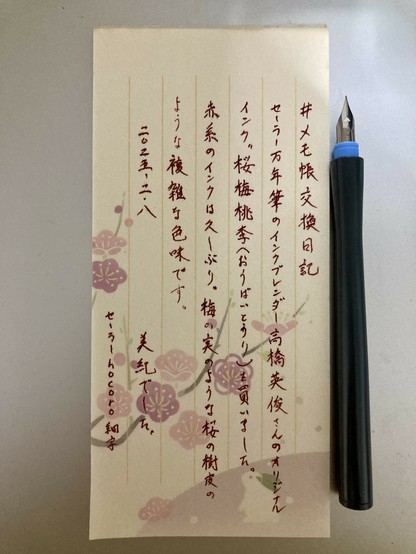 #メモ帳交換日記
セーラー万年筆のインクブレンダー高橋英俊さんのオリジナル
インク"桜梅桃李(おうばいとうり)"を買いました。
赤系のインクは久しぶり。梅の実のような桜の樹皮の
ような複雑な色味です。
二〇二五・二・八
美紀でした。
セーラーhocoro細字